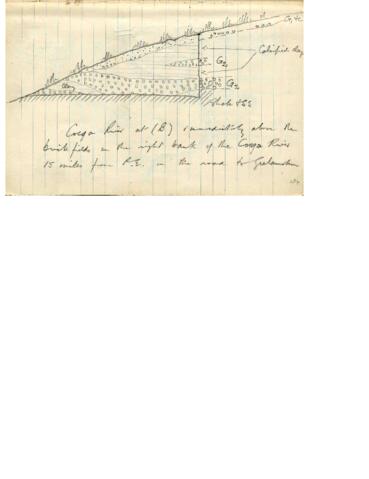 G, 4c
Calcified clay
G2
Clay
G2
shale &SS
Coega River at (B) immediately above the
brickfields on the right bank of the Coega River
15 miles from P.E. on the road to Grahamstown